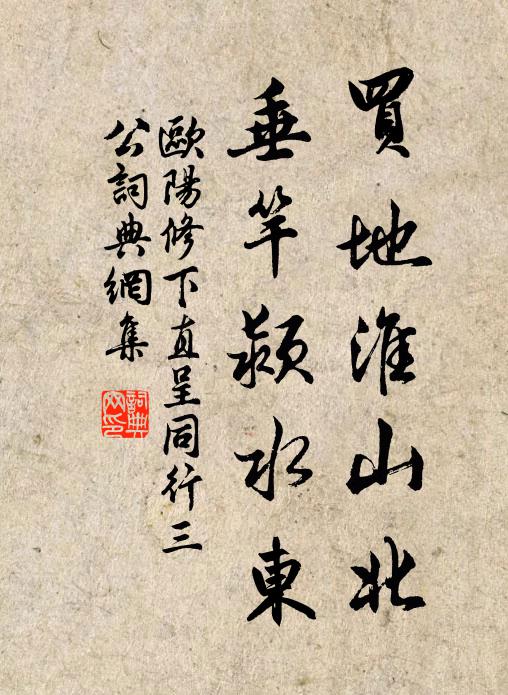 買地淮山北
垂竿潁水東
歐陽修下直呈同行三
公詞典網集
詞典網印